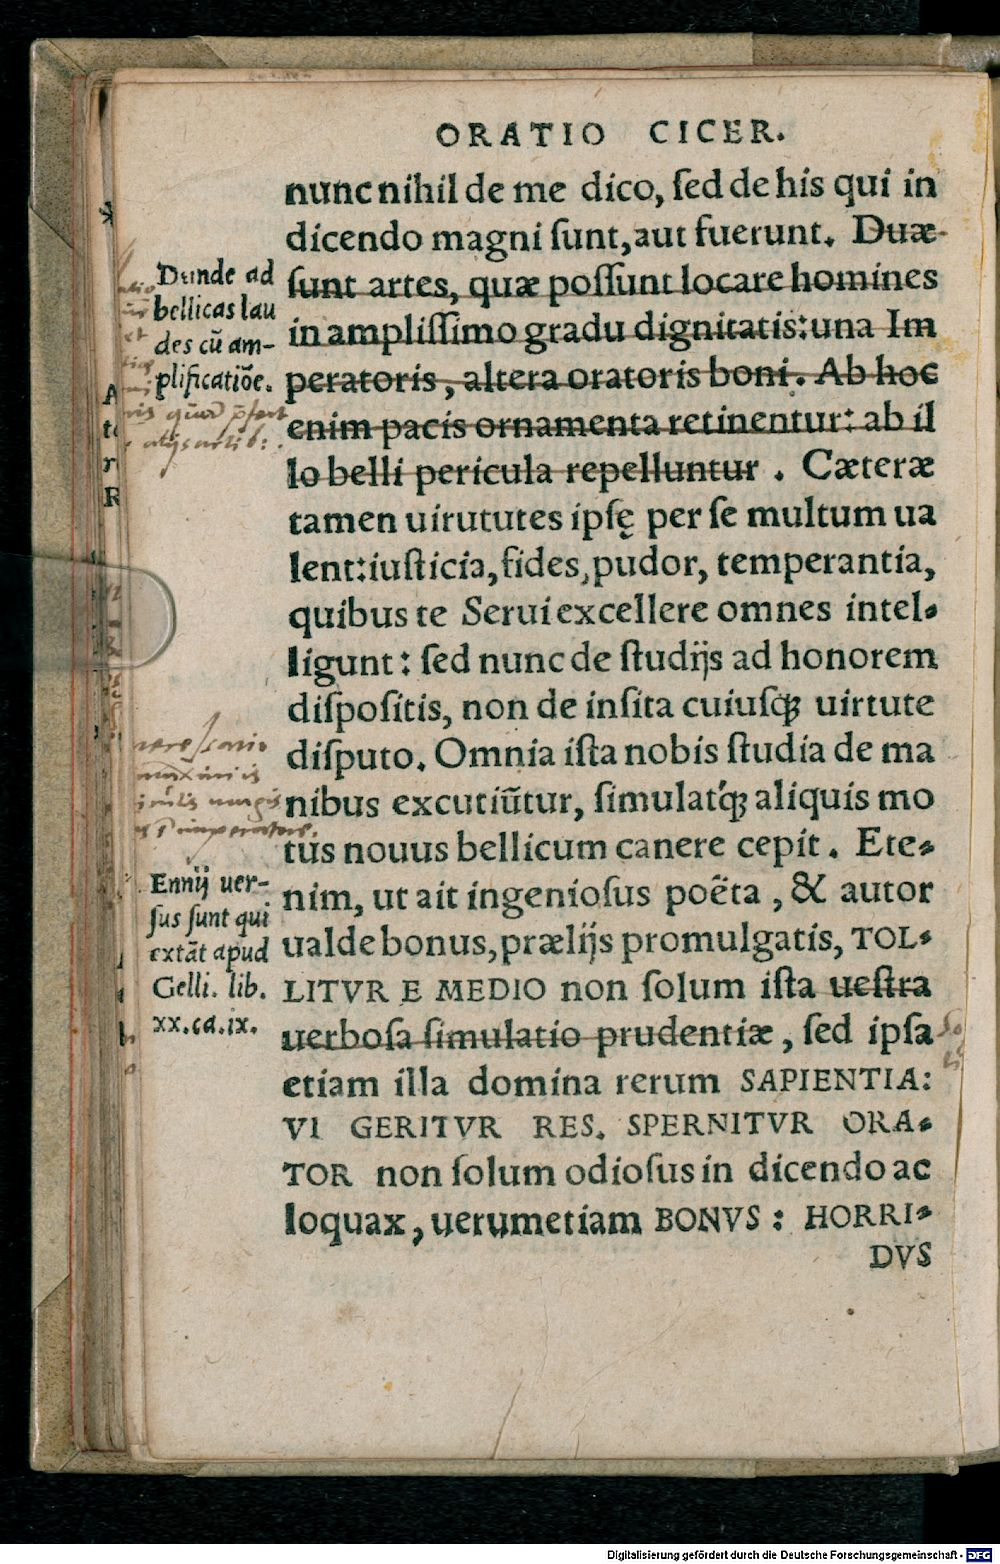 ORATIO CICER.
nunc nihil de me dico, ſed de his qui in
dicendo magni ſunt, aut fuerunt. Duæ
ſunt artes, quæ poſſunt locare homines
in ampliſſimo gradu dignitatis: una Im
peratoris, altera oratoris boni. Ab hoc
enim pacis ornamenta retinentur: ab il
lo belli pericula repelluntur. Cæteræ
tamen uirututes ipſę per ſe multum ua
lent: iuſticia, fides, pudor, temperantia,
quibus te Serui excellere omnes intel-
ligunt: ſed nunc de ſtudijs ad honorem
diſpoſitis, non de inſita cuiuſq; uirtute
diſputo. Omnia iſta nobis ſtudia de ma
nibus excutiūtur, ſimulatq́; aliquis mo
tus nouus bellicum canere cepit. Ete-
nim, ut ait ingenioſus poëta, & autor
ualde bonus, prælijs promulgatis, TOL-
LITVR E MEDIO non ſolum iſta ueſtra
uerboſa ſimulatio prudentiæ, ſed ipſa
etiam illa domina rerum SAPIENTIA:
VI GERITVR RES. SPERNITVR ORA-
TOR non ſolum odioſus in dicendo ac
loquax, uerumetiam BONVS: HORRI-
DVS
Deinde ad
bellicas lau
des cū am-
plificatiōe.
Ennij uer-
ſus ſunt qui
extāt apud
Gelli. lib.
xx.ca.ix.
Digitalisierung gefördert durch die Deutsche Forschungsgemeinschaft - DFG